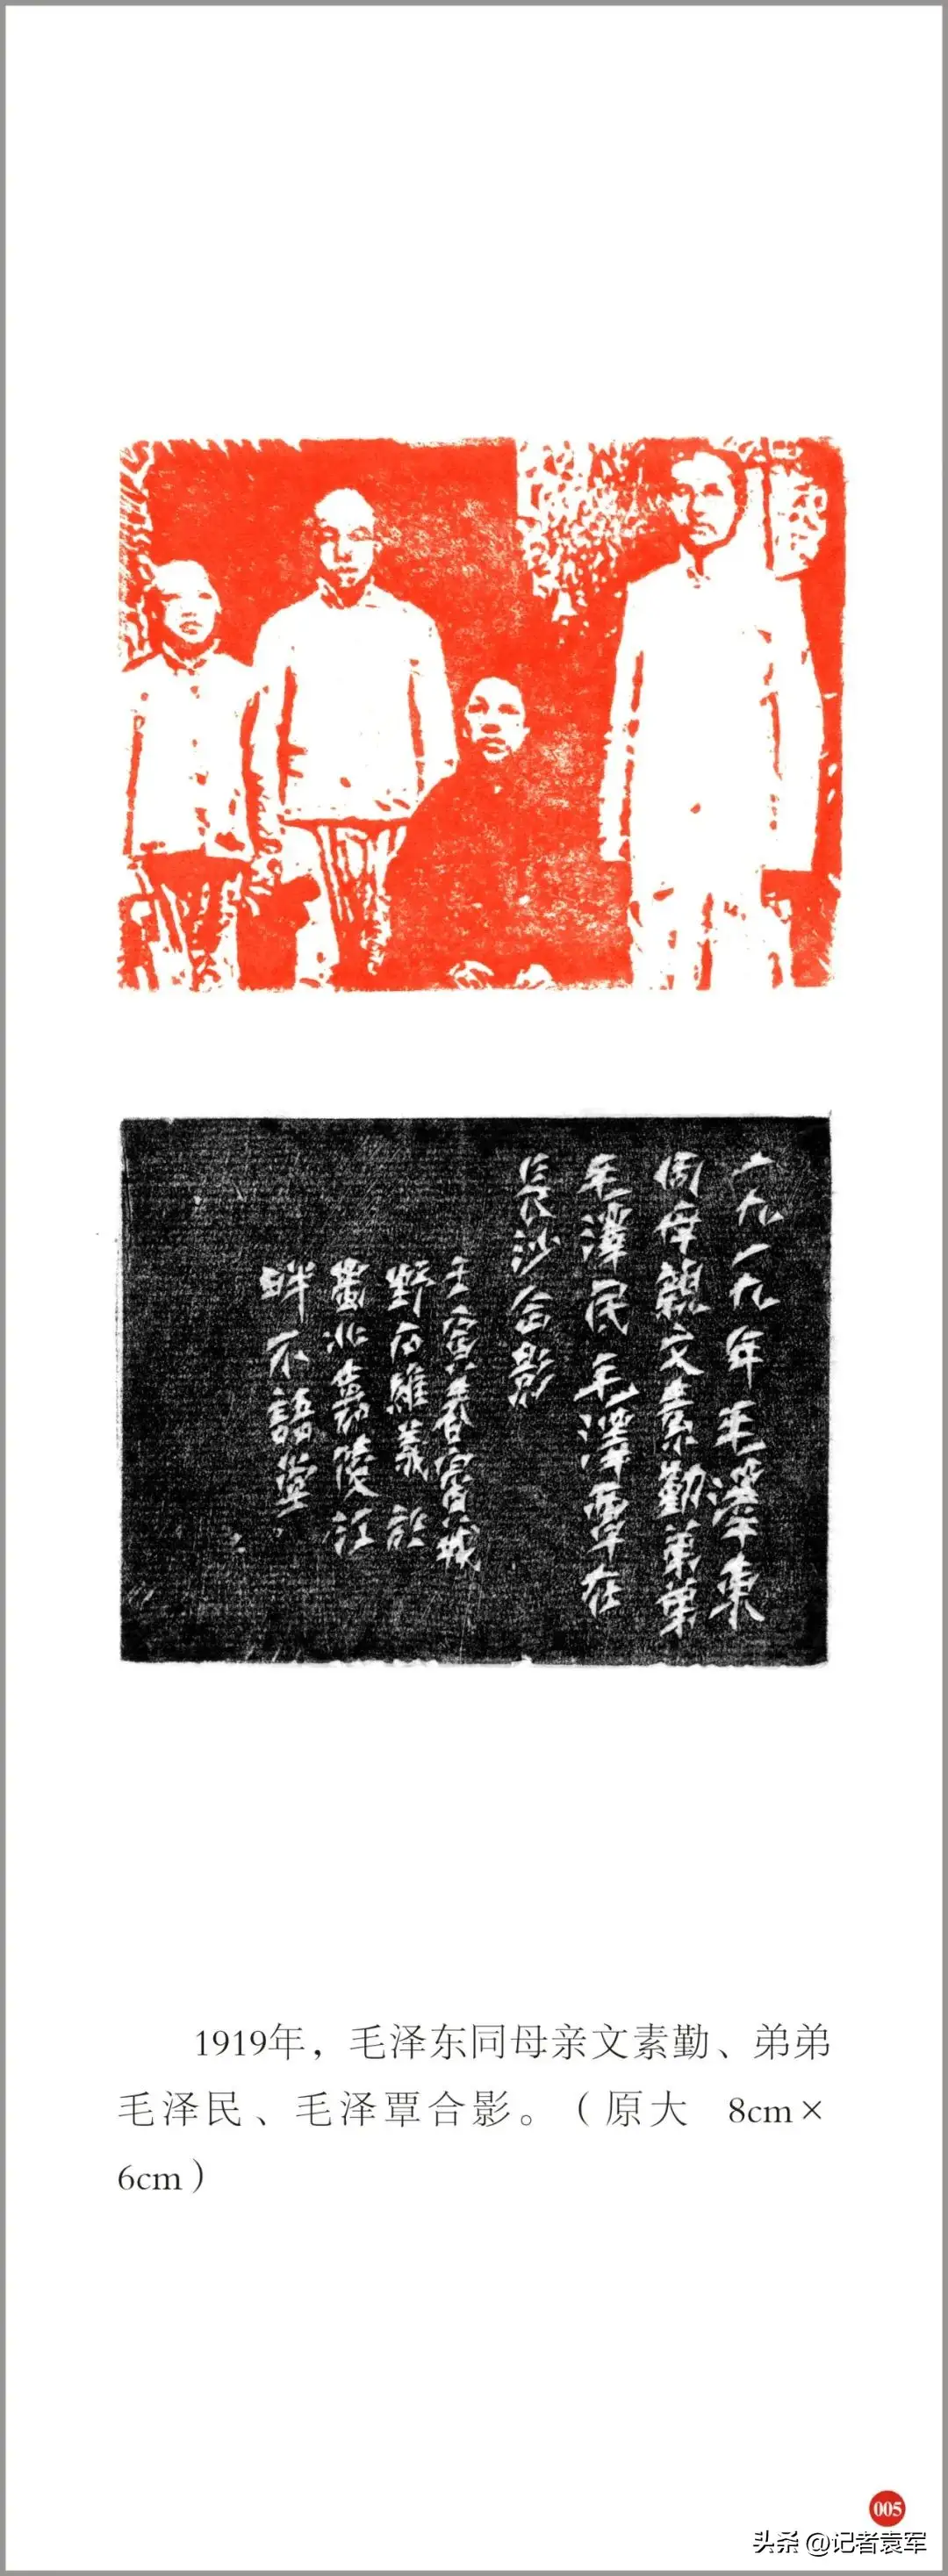 一九一九年毛澤東
同母親文素勤弟弟
毛澤民毛澤覃在
長沙合影
壬寅春宕城
野石雕羲於
蜀北嘉陵江
畔不語堂
1919年，毛泽东同母亲文素勤、弟弟
毛泽民、毛泽覃合影。（原大 8cm×
6cm）
005
头条 @记者袁军